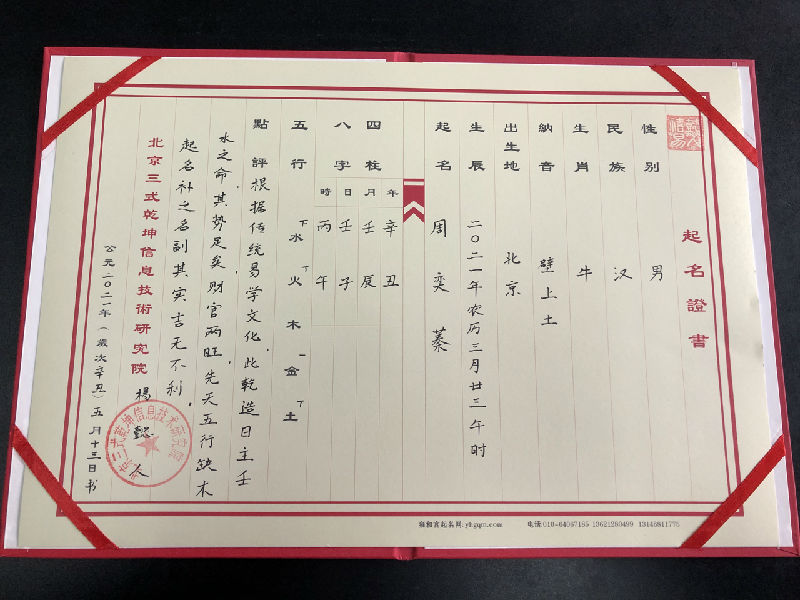 起名證書
性别 男
民族 汉
生肖 牛
納音 壁上土
出生地 北京
生辰 二〇二一年农历三月廿三午时
起名 周奕蓁
四柱 年 辛丑
月 壬辰
八字 日 壬子
時 丙午
五行 水 火 木 金 土
點評 根据传统易学文化,此乾造日主壬
水之命其势足矣财官两旺,先天五行缺木
起名补之名副其实吉无不利.
北京三式乾坤信息技術研究院 楊懿人
公元二〇二一年(歲次辛丑)五月十三日书
雍和宫起名网:yhgqm.com 电话:010-64067185 13621280499 13146811775